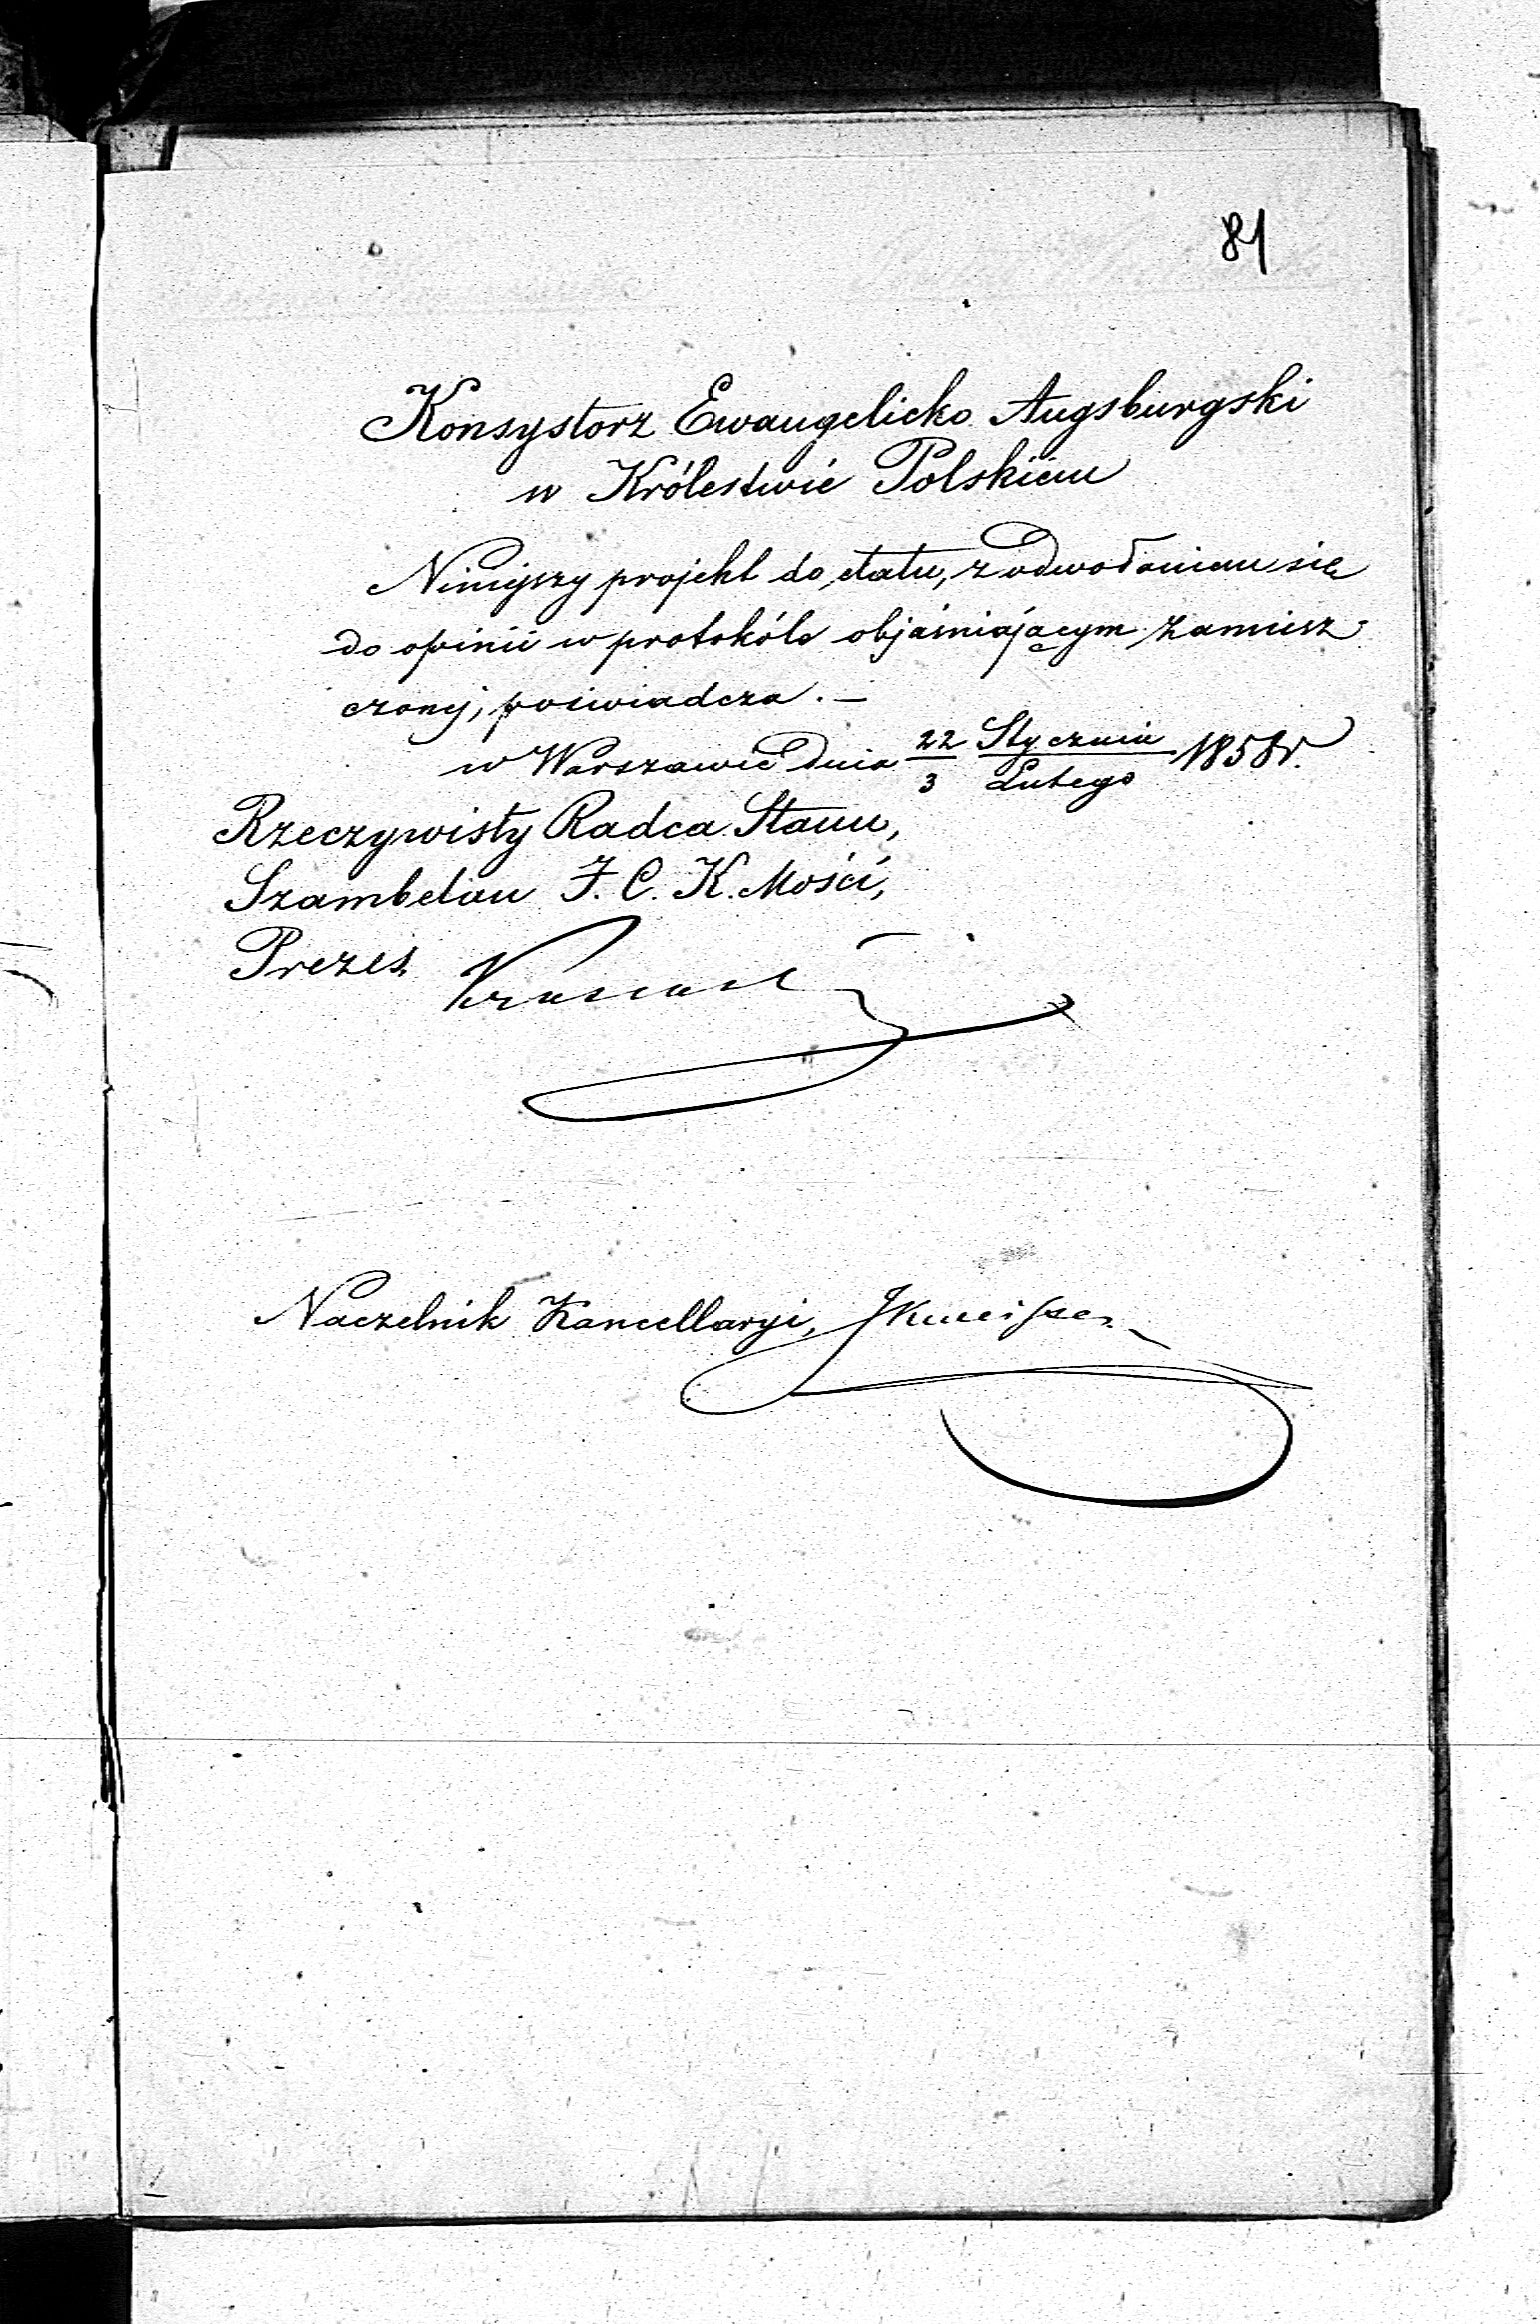 81
Konsystorz Ewangelicko Augsburgski
w Królestwie Polskiem
Niniejszy projekt do etatu, z odwołaniem się
do opinii w protokóle objaśniającym zamiesz-
czonej, poświadcza. —
w Warszawie dnia 22/3 Stycznia/Lutego 1858 r.
Rzeczywisty Radca Stanu,
Szambelan J. C. K. Mości,
Prezes
Naczelnik Kancellaryi,